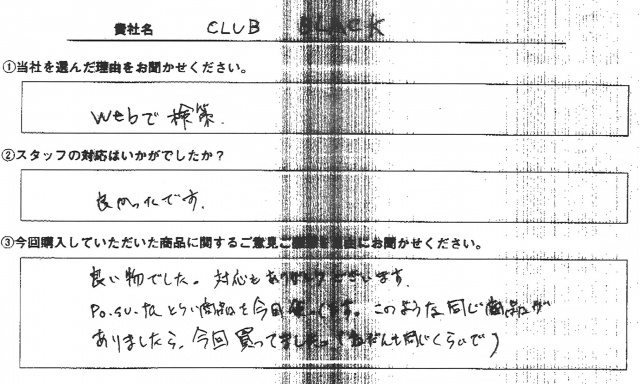 貴社名 CLUB BLACK
①当社を選んだ理由をお聞かせください。
Webで検策.
②スタッフの対応はいかがでしたか？
良かったです.
③今回購入していただいた商品に関するご意見ご を にお聞かせください。
良い物でした。対応もありがとうございます.
Po.su.たという商品を今回 ます。このような同じ商品が
ありましたら、今回買ってました。(ねだんも同じくらいで)